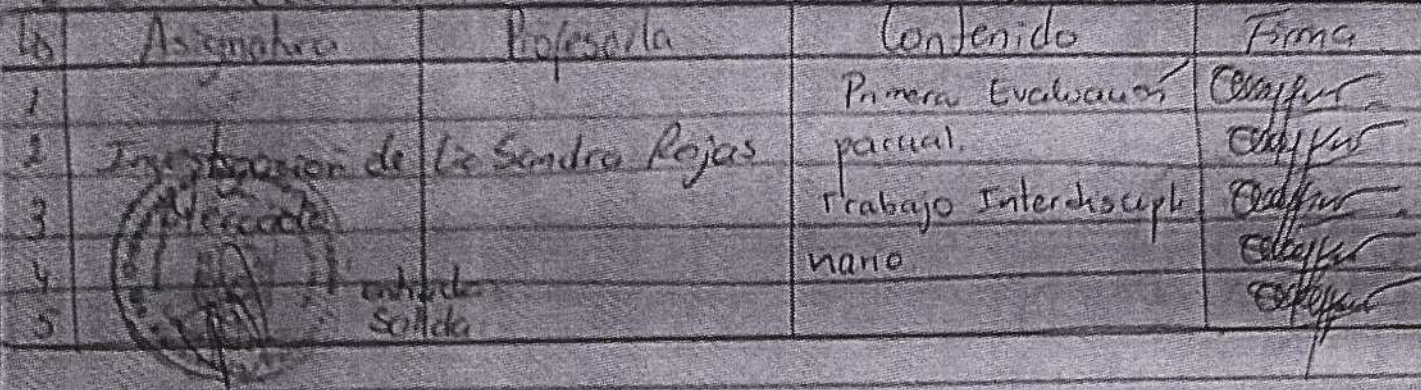 Asignatura Profesor/a Contenido Firma
1 Primera Evaluación
2 Investigación de Lic Sandra Rojas parcial.
3 Mercado Trabajo Interdiscipli
4 nario
entrada
5 Salida